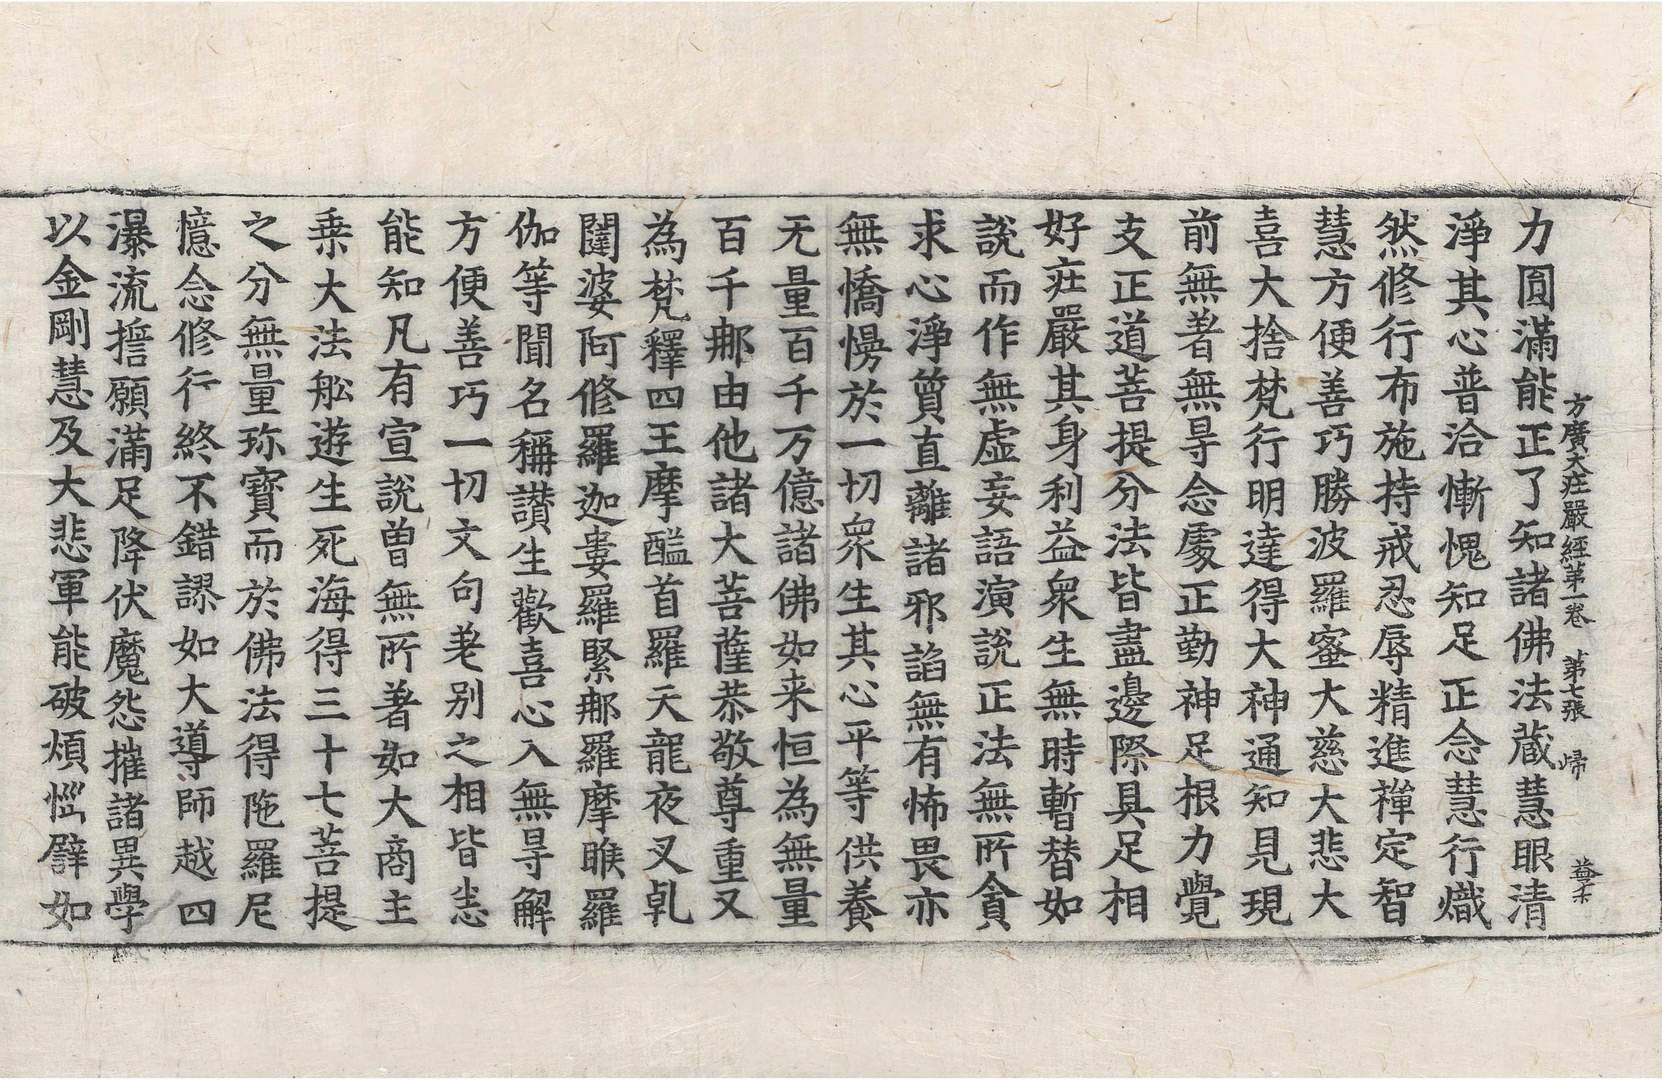 方廣大莊嚴經第一卷 第七張 歸
力圓滿能正了知諸佛法藏慧眼清
淨其心普洽慚愧知足正念慧行熾
然修行布施持戒忍辱精進禪定智
慧方便善巧勝波羅蜜大慈大悲大
喜大捨梵行明達得大神通知見現
前無著無㝵念處正勤神足根力覺
支正道菩提分法皆盡邊際具足相
好莊嚴其身利益衆生無時暫替如
說而作無虛妄語演說正法無所貪
求心淨質直離諸邪諂無有怖畏亦
無憍慢於一切衆生其心平等供養
无量百千万億諸佛如来恒為無量
百千那由他諸大菩薩恭敬尊重又
為梵釋四王摩醯首羅天龍夜叉乹
闥婆阿修羅迦婁羅緊那羅摩睺羅
伽等聞名稱讚生歡喜心入無㝵解
方便善巧一切文句差别之相皆悉
能知凡有宣說曽無所著如大商主
乗大法舩遊生死海得三十七菩提
之分無量珎寶而於佛法得陁羅尼
憶念修行終不錯謬如大導師越四
瀑流擔願滿足降伏魔怨摧諸異學
以金剛慧及大悲軍能破煩惱譬如